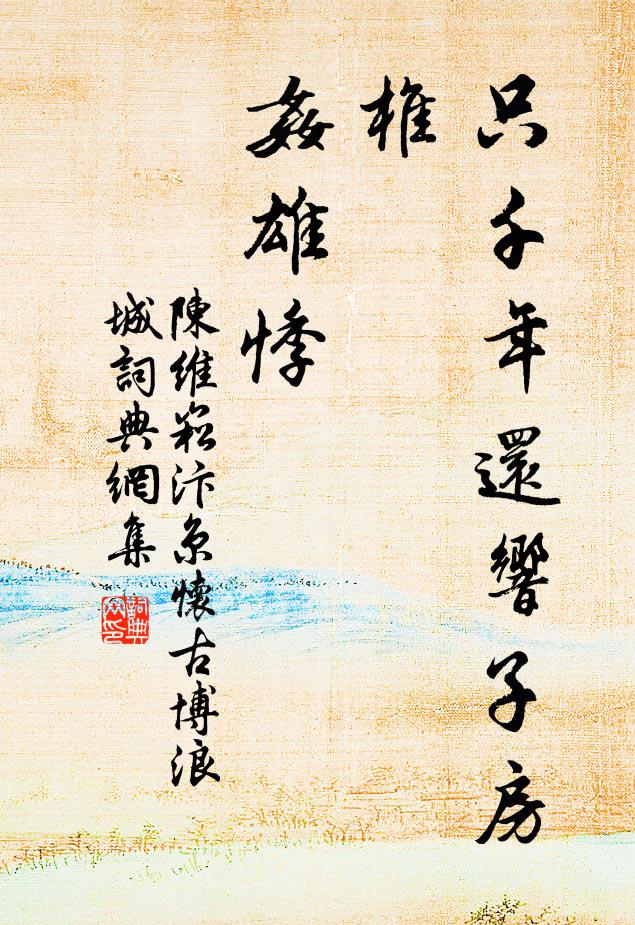 只千年還響子房
椎
姦雄悸
陳維崧汴京懷古博浪
城詞典網集
詞典
网印